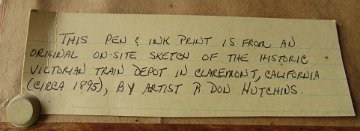 THIS PEN & INK PRINT IS FROM AN
ORIGINAL ON-SITE SKETCH OF THE HISTORIC
VICTORIAN TRAIN DEPOT IN CLAREMONT, CALIFORNIA
(CIRCA 1895), BY ARTIST R. DON HUTCHINS.